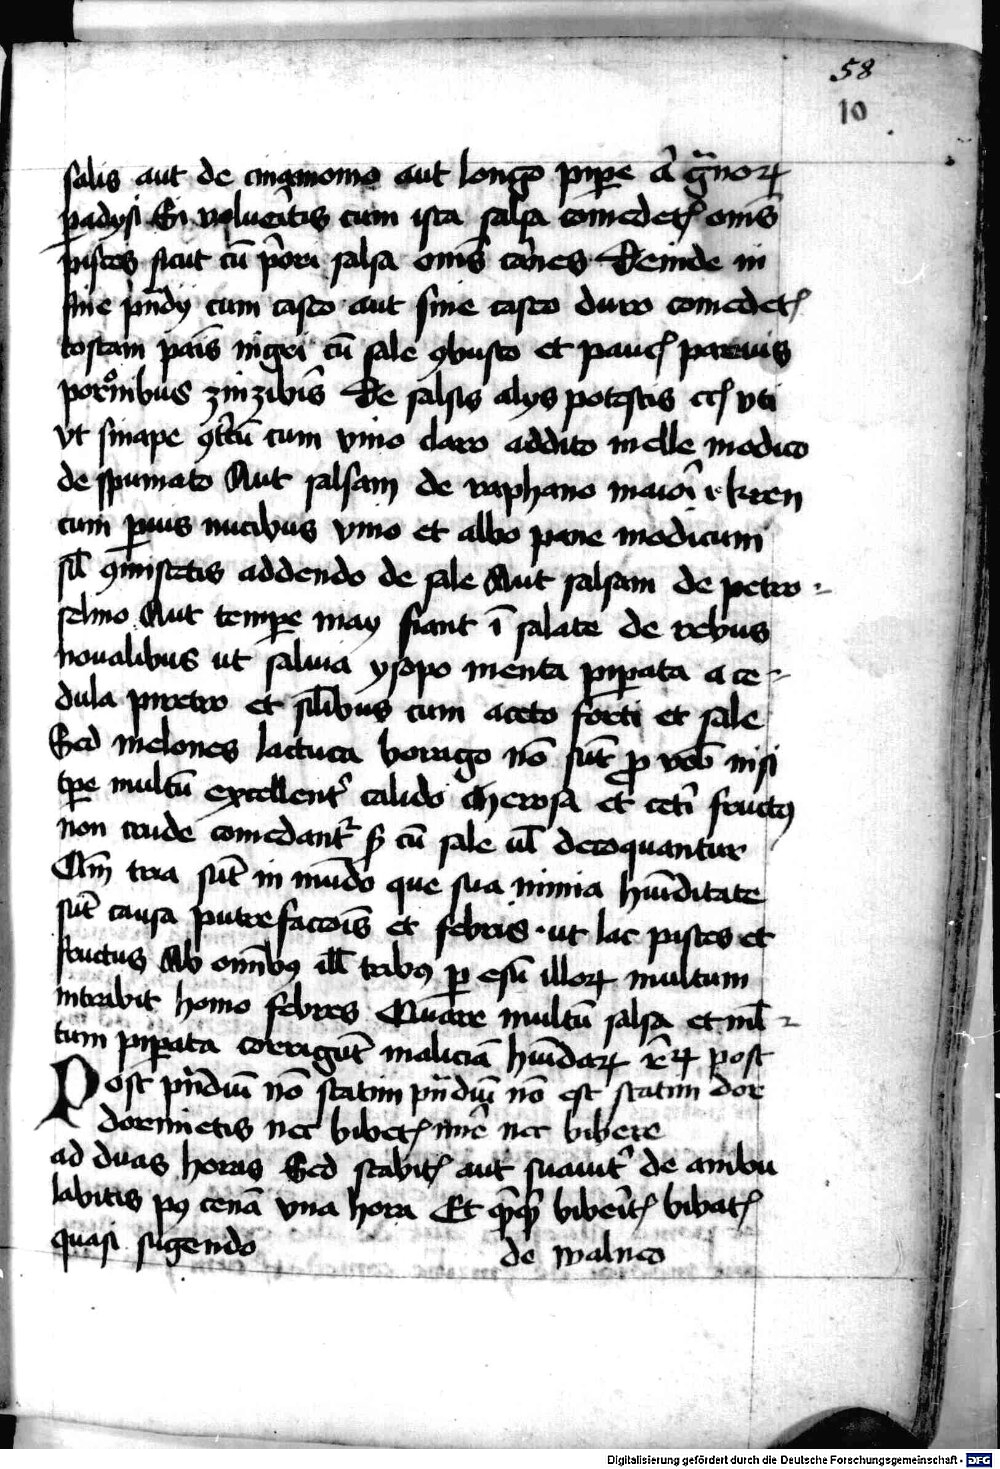 58
10
salis aut de cinamomo aut longo pipere aut granorum
padysi Si volueritis cum ista salsa comedetis omnes
pisces sicut cum priori salsa omnes carnes Deinde in
fine prandy cum caseo aut sine caseo duro comedetis
tostam panis nigri cum sale combusto et paucis parvis
porcionibus zinziberis De salsis alys potestis eciam vti
vt sinape confectum cum vino claro addito melle modico
de spumato Aut salsam de raphano maiori kren
cum prius nucibus vino et albo pane modicum
simul commiscetis addendo de sale Aut salsam de petro-
selino Aut tempore may fiant in salate de rebus
novalibus ut salvia ysopo menta piperata ace-
dula piretro et similibus cum aceto forti et sale
Sed melones lactuca borrago non sunt pro vobis nisi
tempore multum excellenter calido Cherosa et ceteri fructus
non crude comedantur sed cum sale vel decoquantur
Nam tria sunt in mundo que sua nimia humiditate
sunt causa putrefactionis et febris ut lac pisces et
fructus Ab omnibus illis tribus per esum illorum multum
intrabit homo febres Quare multum salsa et mul-
tum piperata corrigunt maliciam humidarum rerum post
Post prandium non statim prandium non est statim dor
dormietis nec bibetis mane nec bibere
ad duas horas Sed stabitis aut suaviter de ambu
labitis post cenam vna hora Et quandoque biberitis bibatis
quasi sugendo de malueo
Digitalisierung gefördert durch die Deutsche Forschungsgemeinschaft - DFG